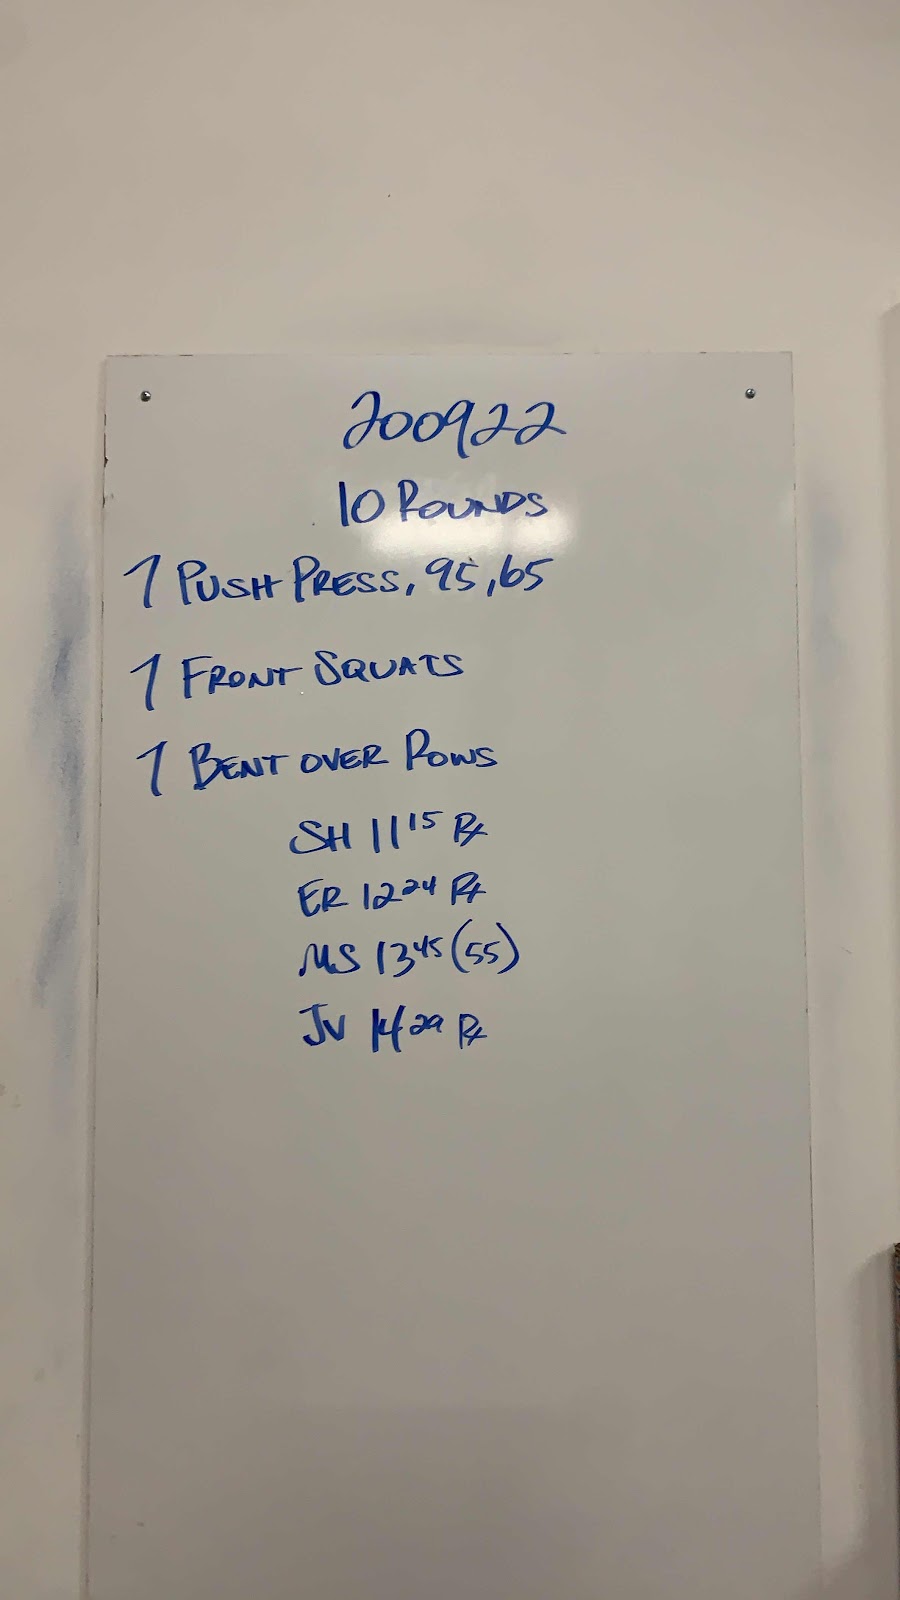 200922
10 ROUNDS
7 PUSH PRESS, 95, 65
7 FRONT SQUATS
7 BENT OVER ROWS
SH 11 15 Rx
ER 12 24 Rx
MS 13 45 (55)
JV 14 29 Rx